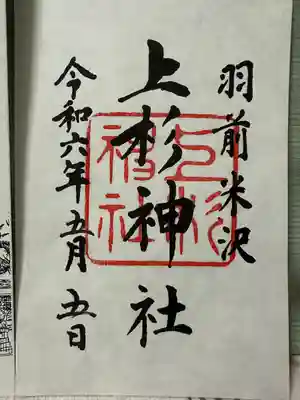 羽前米沢
上杉神社
上杉神社
令和六年五月五日